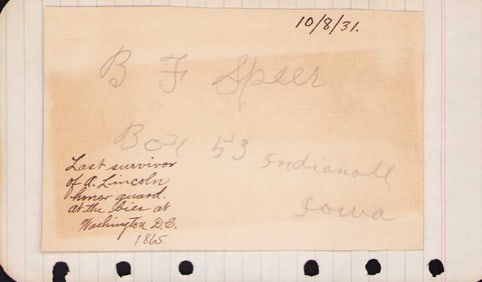 10/8/31.
B F Speer
Box 53 Indianoll
Iowa
Last survivor
of A. Lincoln
honor guard.
at the bier at
Washington D.C.
1865.